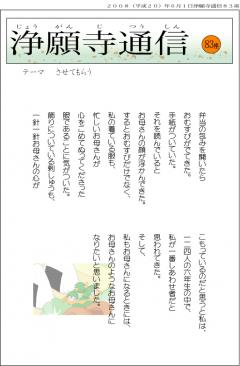 2008(平成20)年6月1日浄願寺通信83号
じょう がん じ つう しん
浄願寺通信
83号
テーマ　させてもらう
弁当の包みを開いたら
おむすびがでてきた。
手紙がついていた。
それを読んでいると
お母さんの顔が浮かんできた。
するとおむすびだけでなく、
私の着ている服も、
忙しいお母さんが
心をこめてぬってくださった
服であることに気がついた。
飾りについている刺しゅうも、
一針一針お母さんの心が
こもっているのだと思うと私は、
一二四人の六年生の中で、
私が一番しあわせ者だと
思われてきた。
そして、
私もお母さんになるときには、
お母さんのようなお母さんに
なりたいと思いました。